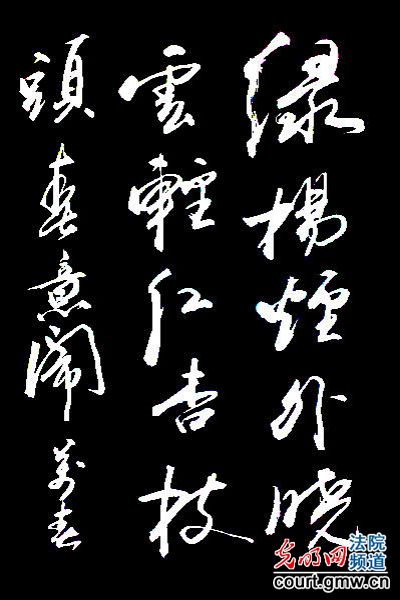 绿楊煙外晓
雲輕红杏枝
頭春意闹
光明网
法院
频道
court.gmw.cn